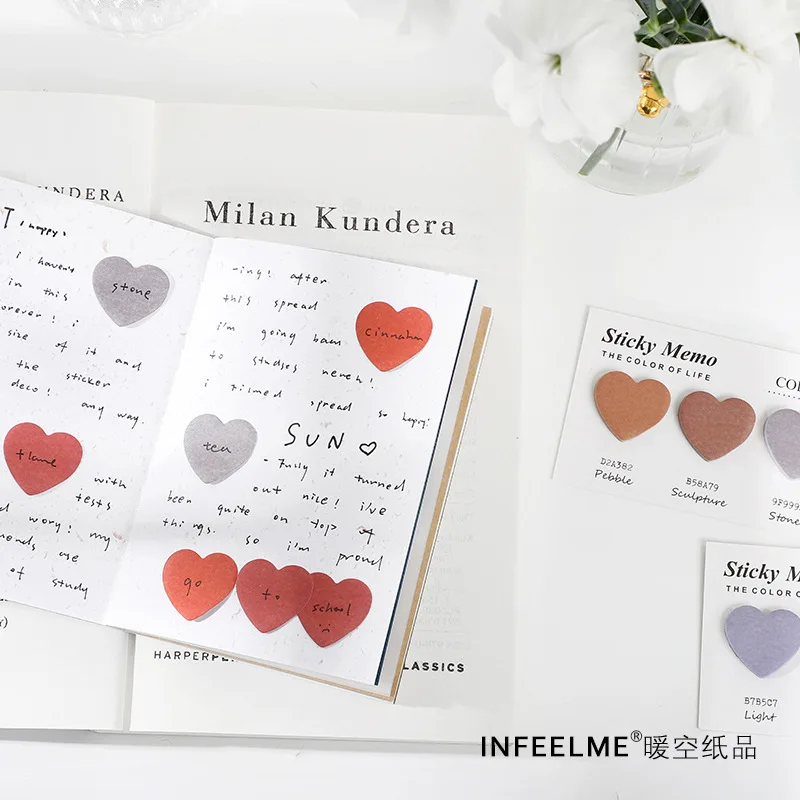 UNDERA
Milan Kundera
T i happy!
i haven't
in this
forever! i
size of it and
the sticker
deco! any way.
stone
flame
with
tests
d wory! my
use
of study
ring! after
this spread
i'm going bam
to studses
i
spread so happy!
cinnabar
tea
SUN ♡
- Fully it turned
out nice! i've
been quite on top of
things. so i'm proud
go
to
school
HARPERPE
LASSICS
Sticky Memo
THE COLOR OF LIFE
COL
D2A382
Pebble
B58A79
Sculpture
9F999
Stone
Sticky M
THE COLOR O
B7B5C7
Light
INFEELME®暖空纸品